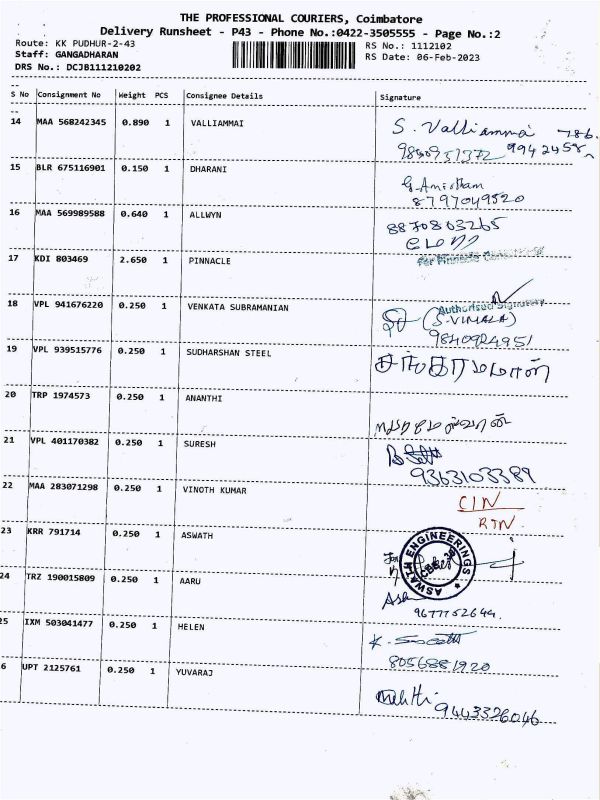 THE PROFESSIONAL COURIERS, Coimbatore
Delivery Runsheet - P43 - Phone No.:0422-3505555 - Page No.:2
Route: KK PUDHUR-2-43
RS No.: 1112102
Staff: GANGADHARAN
RS Date: 06-Feb-2023
DRS No.: DCJB111210202
S No Consignment No Weight PCS Consignee Details Signature
14 MAA 568242345 0.890 1 VALLIAMMAI S. Valliammai
15 BLR 675116901 0.150 1 DHARANI
8797049520
16 MAA 569989588 0.640 1 ALLWYN 8870803265
17 KDI 803469 2.650 1 PINNACLE For Pinnacle
Authorised Signatory
18 VPL 941676220 0.250 1 VENKATA SUBRAMANIAN (S.VIMALA)
9840924951
19 VPL 939515776 0.250 1 SUDHARSHAN STEEL
20 TRP 1974573 0.250 1 ANANTHI
21 VPL 401170382 0.250 1 SURESH
9363103389
22 MAA 283071298 0.250 1 VINOTH KUMAR CIN
RTN
23 KRR 791714 0.250 1 ASWATH For ASWATH ENGINEERINGS
24 TRZ 190015809 0.250 1 AARU
9677152644
25 IXM 503041477 0.250 1 HELEN
8056881920
6 UPT 2125761 0.250 1 YUVARAJ
9443326046